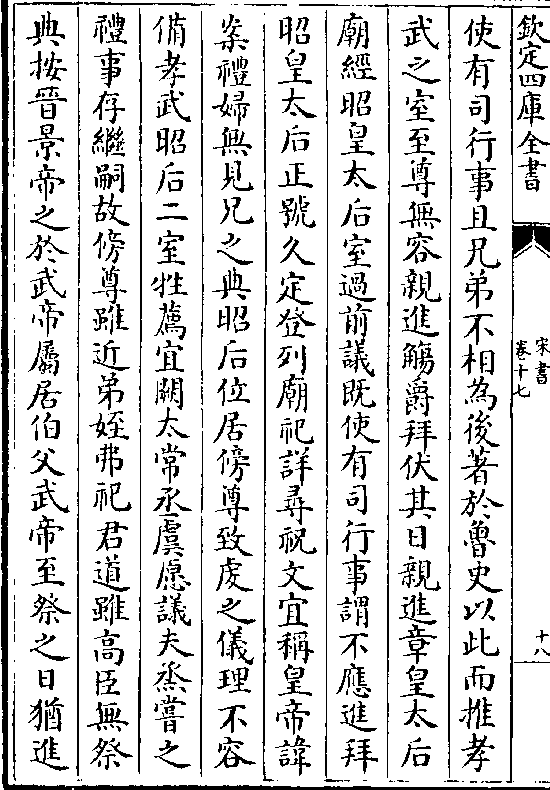 欽定四庫全書
宋書
卷十七
十八
使有司行事且兄弟不相為後著於魯史以此而推孝
武之室至尊無容親進觴爵拜伏其日親進章皇太后
廟經昭皇太后室過前議既使有司行事謂不應進拜
昭皇太后正號久定登列廟祀詳尋祝文宜稱皇帝諱
案禮婦無見兄之典昭后位居傍尊致虔之儀理不容
備孝武昭后二室牲薦宜闕太常丞虞愿議夫烝嘗之
禮事存繼嗣故傍尊雖近弟姪弗祀君道雖高臣無祭
典按晉景帝之於武帝屬居伯父武帝至祭之日猶進